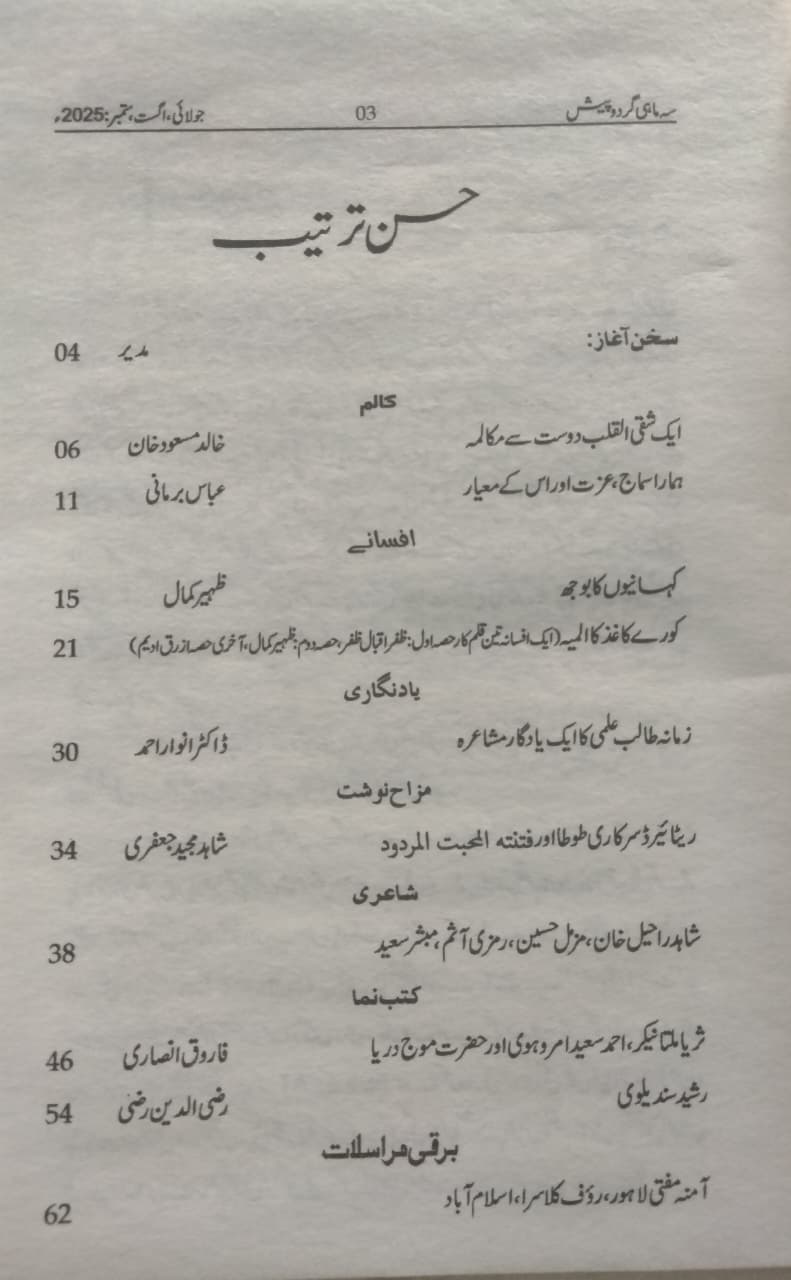 سہ ماہی گردوپیش 03 جولائی، اگست، ستمبر: 2025ء
حسن ترتیب
سخن آغاز: مدیر 04
کالم
ایک شقی القلب دوست سے مکالمہ خالد مسعود خان 06
ہمارا سماج، عزت اور اس کے معیار عباس برمانی 11
افسانے
کہانیوں کا بوجھ ظہیر کمال 15
کورے کاغذ کا المیہ (ایک افسانہ تین قلم کار حصہ اول: ظفر اقبال ظفر، حصہ دوم: ظہیر کمال، آخری حصہ ازرق ادیم) 21
یادنگاری
زمانہ طالب علمی کا ایک یادگار مشاعرہ ڈاکٹر انوار احمد 30
مزاح نوشت
ریٹائیرڈ سرکاری طوطا اور فتنتہ المحبت المردود شاہد مجید جعفری 34
شاعری
شاہد راحیل خان، مزمل حسین، رمزی آثم، مبشر سعید 38
کتب نما
ثریا ملتانیکر، احمد سعید امروہوی اور حضرت موج دریا فاروق انصاری 46
رشید سندیلوی رضی الدین رضی 54
برقی مراسلات
آمنہ مفتی لاہور، رؤف کلاسرا، اسلام آباد 62